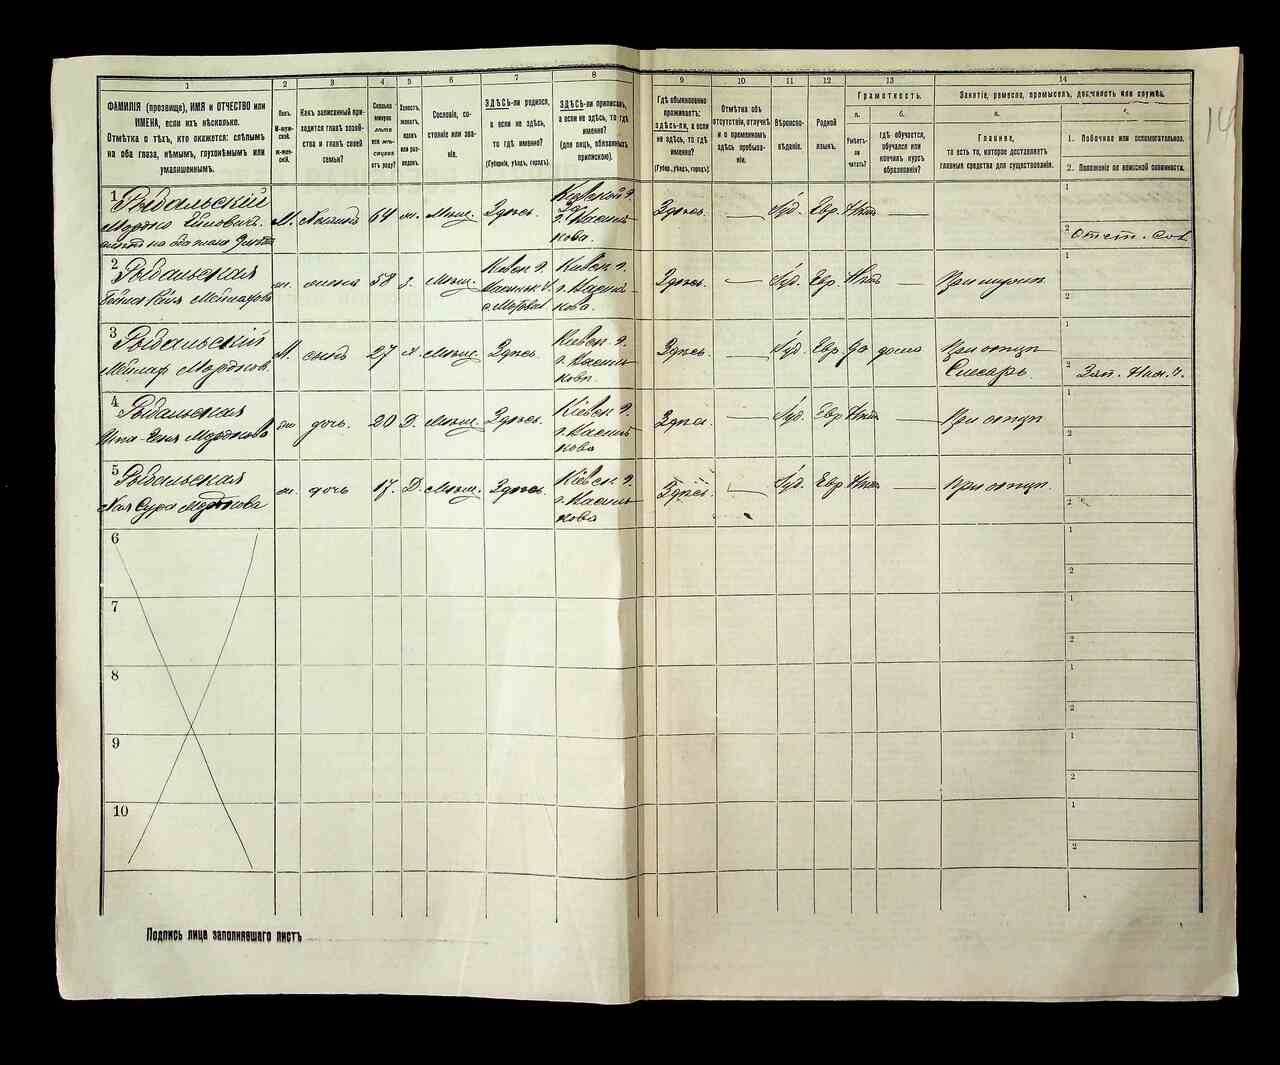 1
2
3
4
5
6
7
8
9
10
11
12
13
14
ФАМИЛІЯ (прозвище), ИМЯ и ОТЧЕСТВО или
ИМЕНА, если ихъ нѣсколько.
Отмѣтка о тѣхъ, кто окажется: слѣпымъ
на оба глаза, нѣмымъ, глухонѣмымъ или
умалишеннымъ.
Полъ.
М-муж-
ской.
Ж-жен-
скій.
Какъ записанный при-
ходится главѣ хозяй-
ства и главѣ своей
семьи?
Сколько
минуло
лѣтъ
или мѣ-
сяцевъ
отъ роду?
Холостъ,
женатъ,
вдовъ
или раз-
веденъ.
Сословіе, со-
стояніе или зва-
ніе.
ЗДѢСЬ-ли родился,
а если не здѣсь,
то гдѣ именно?
(Губернія, уѣздъ, городъ).
ЗДѢСЬ-ли приписанъ,
а если не здѣсь, то гдѣ
именно?
(для лицъ, обязанныхъ
припискою).
Гдѣ обыкновенно
проживаетъ:
здѣсь-ли, а если
не здѣсь, то гдѣ
именно?
(Губер., уѣздъ, городъ).
Отмѣтка объ
отсутствіи, отлучкѣ
и о временномъ
здѣсь пребыва-
ніи.
Вѣроиспо-
вѣданіе.
Родной
языкъ.
Грамотность.
а.
Умѣетъ-
ли
читать?
б.
гдѣ обучается,
обучался или
кончилъ курсъ
образованія?
Занятіе, ремесло, промыселъ, должность или служба.
а.
Главное,
то есть то, которое доставляетъ
главныя средства для существованія.
1. Побочное или вспомогательное.
2. Положеніе по воинской повинности.
1 Рыбальскій
М. 64 ж. Мѣщ. Здѣсь. Кіевской г.
Здѣсь. — Іуд. Евр. Нѣтъ —
2 Отст. Сол
2 Рыбальская
ж. жена 58 з. Мѣщ. Кіевск г. Кіевск г.
Здѣсь. — Іуд. Евр Нѣтъ — При мужѣ
3 Рыбальскій
Мордков.
М. сынъ 27 х. Мѣщ. Здѣсь. Кіевск г.
г. Василь
кова
Здѣсь. — Іуд. Евр да дома При отцѣ
Слесарь.
2 Зап. Ниж. ч.
4 Рыбальская
Мордкова
дочь. 20 Д. Мѣщ. Здѣсь. Кіевск г.
г. Василь
кова
Здѣсь. — Іуд. Евр Нѣтъ — При отцѣ
5 Рыбальская
Хая Сура Мордкова
ж. дочь 17. Д. Мѣщ. Здѣсь. Кіевск г.
г. Василь
кова
Здѣсь. — Іуд. Евр Нѣтъ — При отцѣ.
6
7
8
9
10
Подпись лица заполнявшаго листъ